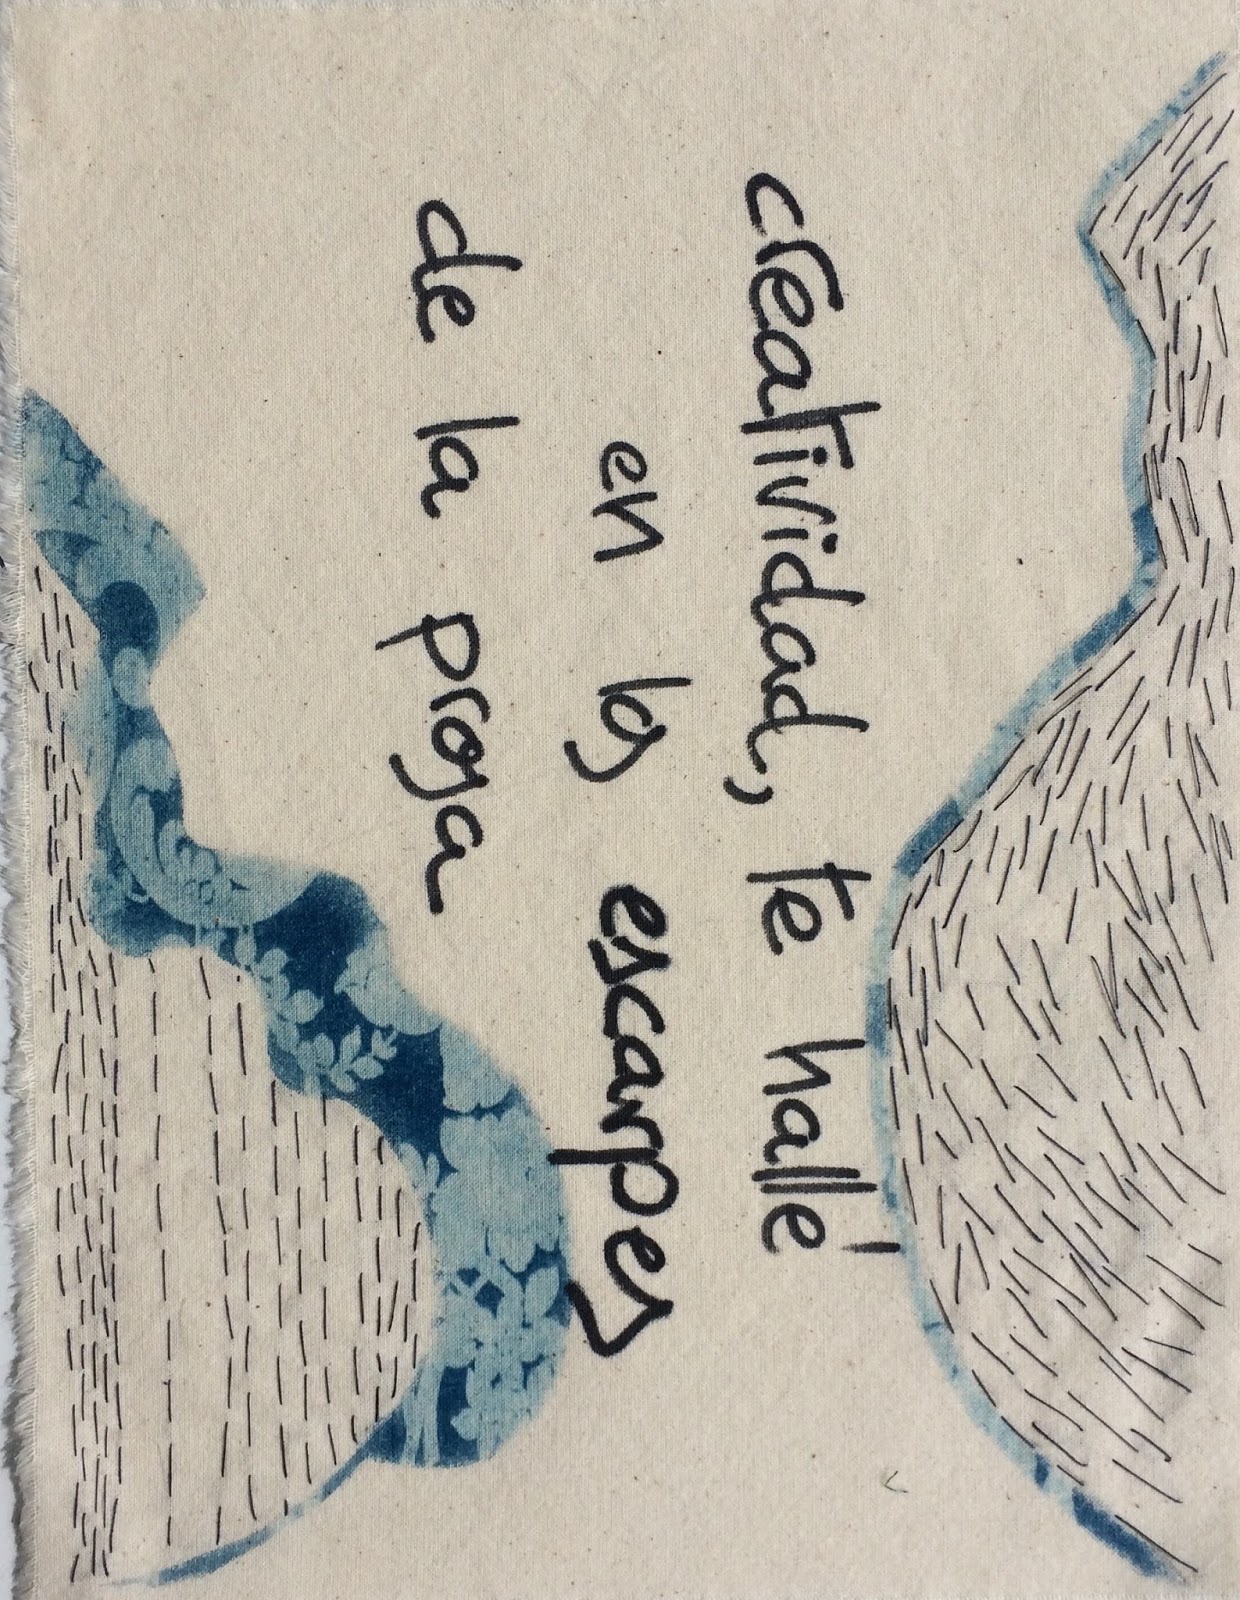 creatividad, te hallé
en los escarpes
de la prosa